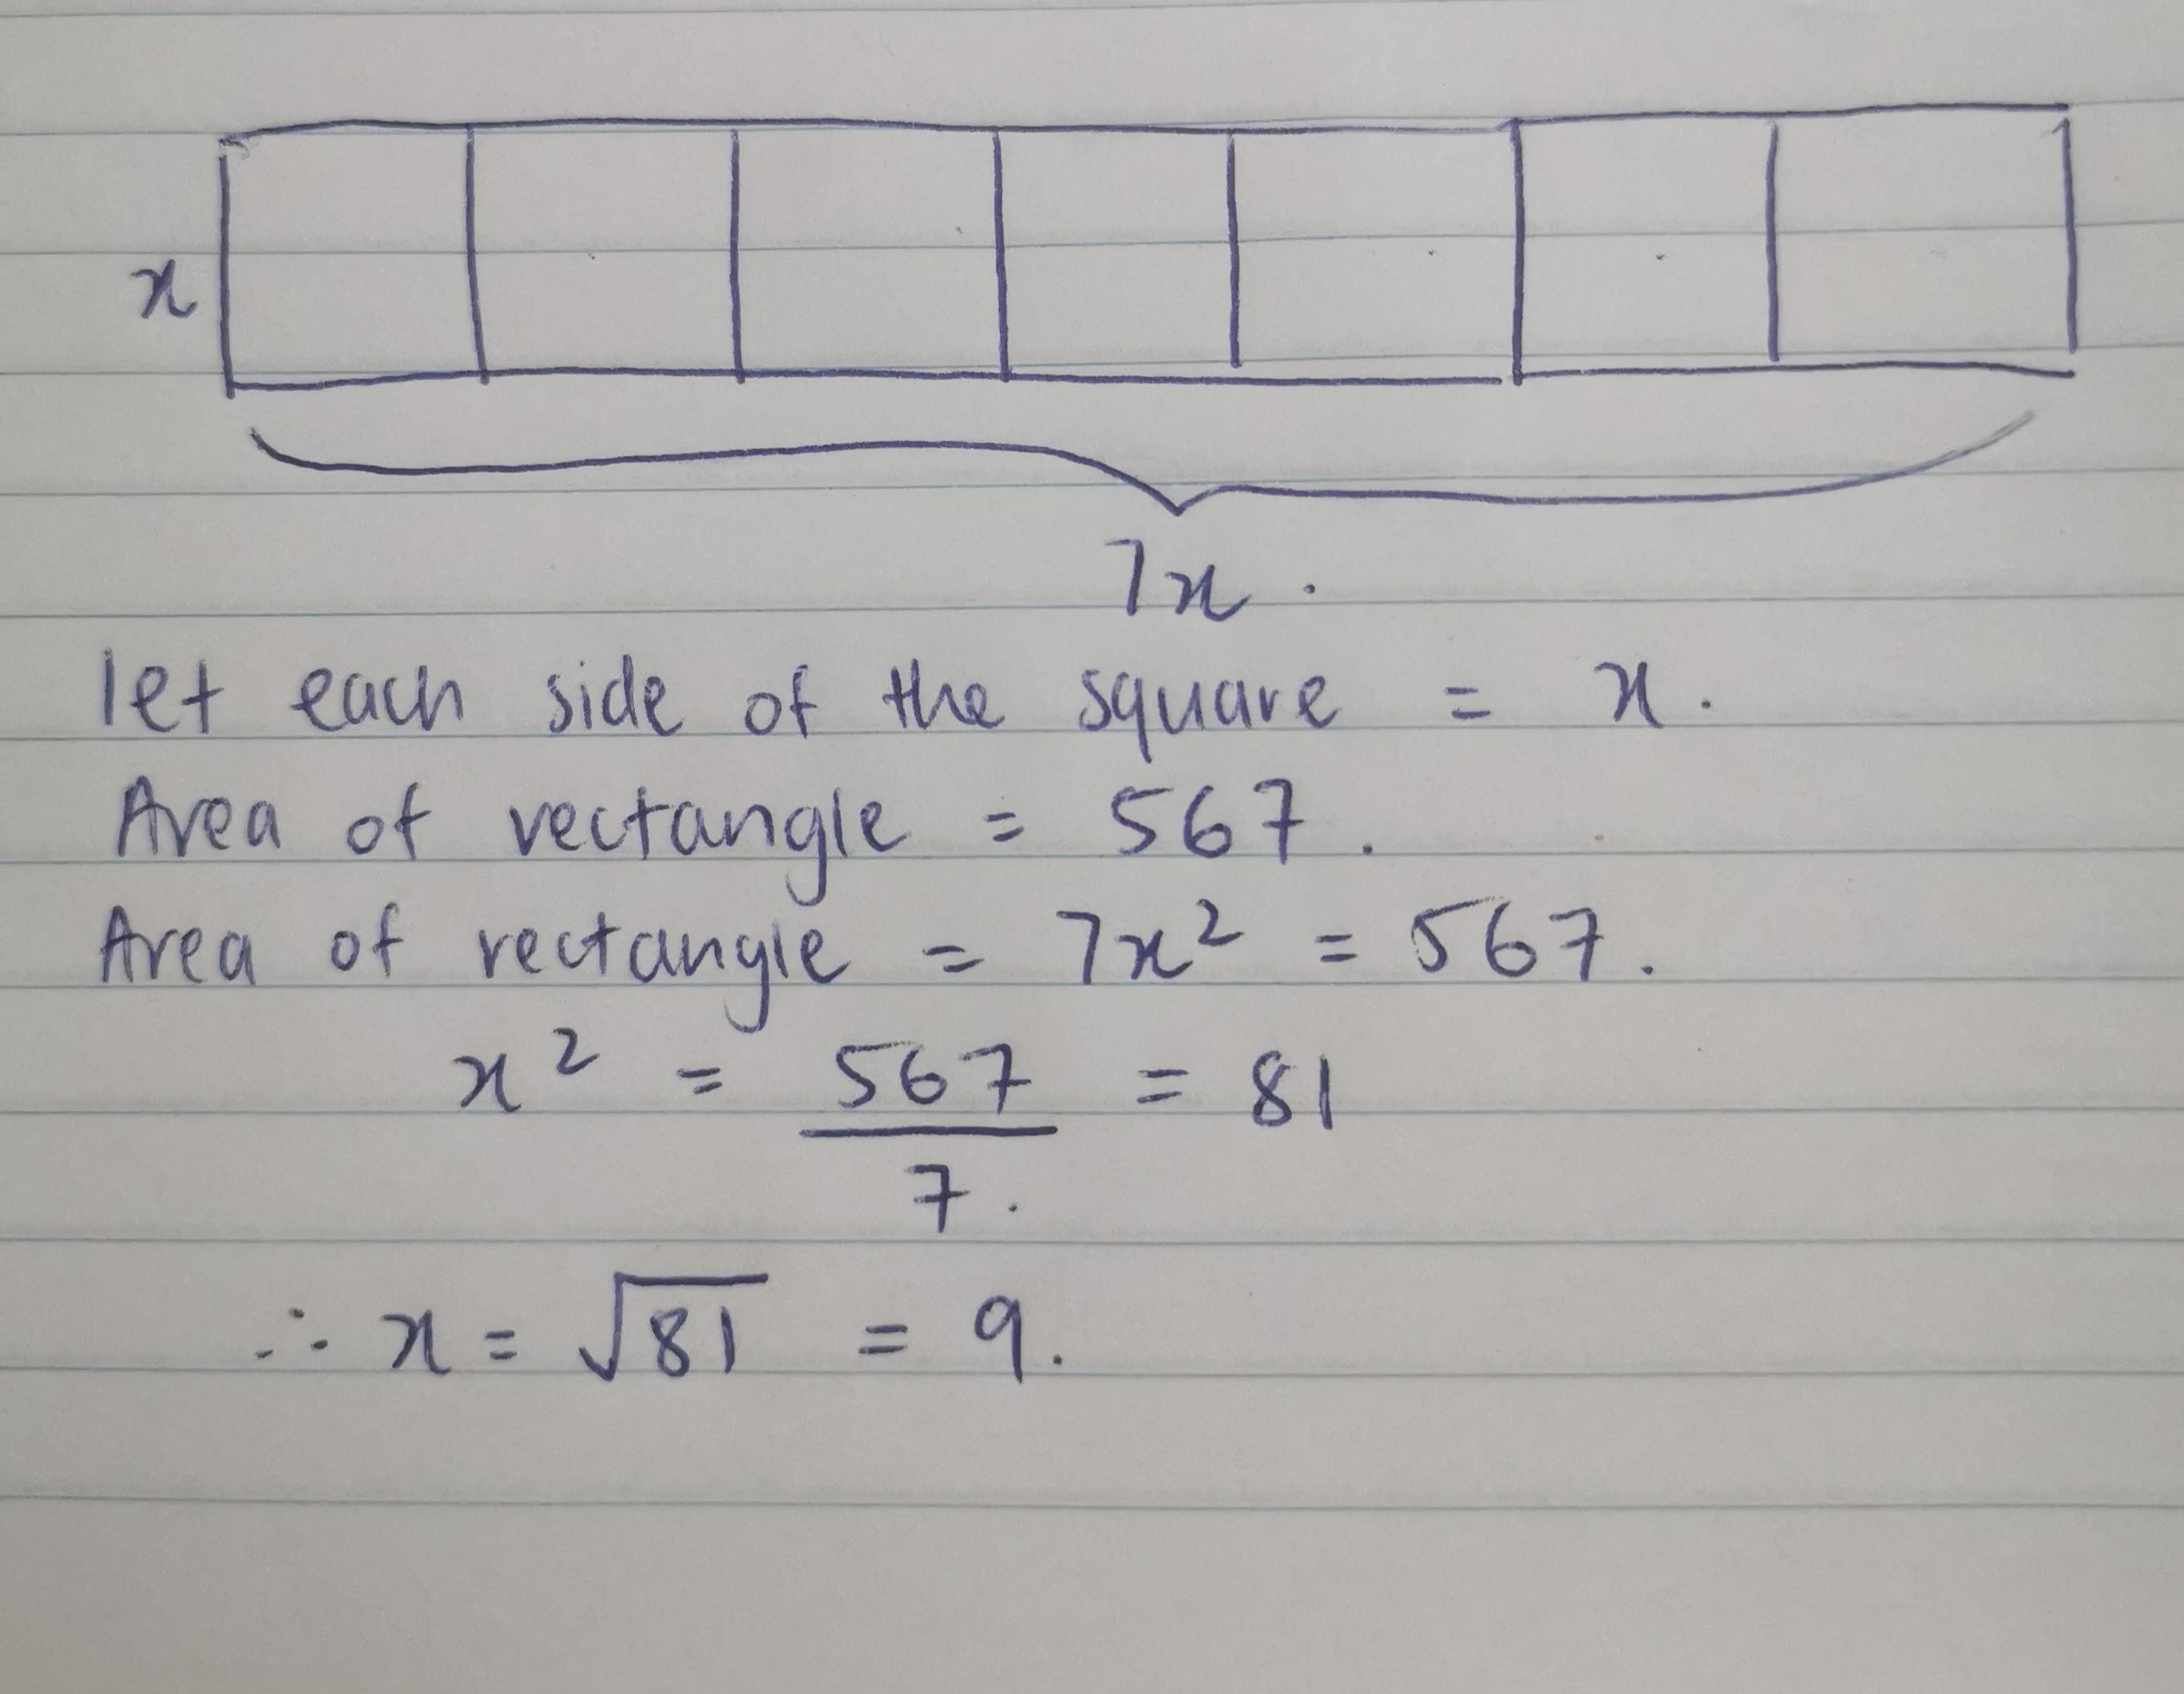 x
7x.
let each side of the square = x.
Area of rectangle = 567.
Area of rectangle = 7x² = 567.
x² = 567/7. = 81
∴ x = √81 = 9.